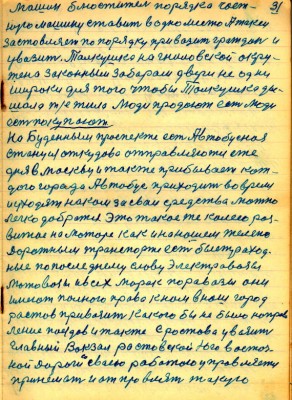 31
машин блюстител порядка част-
ную машину ставит в одно место А такси
заставляет по порядку привозит граждан и
увозит. Толкушка на гниловской окру-
жена законным забарам двери не одни
широки для того чтоби Толкушка ды-
шала
Люди продают ест Люди
ест покупают
На Буденным проспекте ест Автобусная
станция откудова отправляются еже
дня в Москву и также прибывает каж-
дого города Автобус приходит во время
исходят на каком засваи средства можно
легко добратся Это такое же колесо раз-
витое на моторе как и на нашем желено
Дорожным транспорте ест быстраход-
ные по последнему слову Электравозы
мотовозы и всех марак паравазы они
имеют полного права к ним в наш город
растов привозит какого би не било направ
ление поездов и также с ростова увозит
главный Вокзал растовской Юго восточ-
ной Дороги сваею работою управляет
принемат и отправлят такую